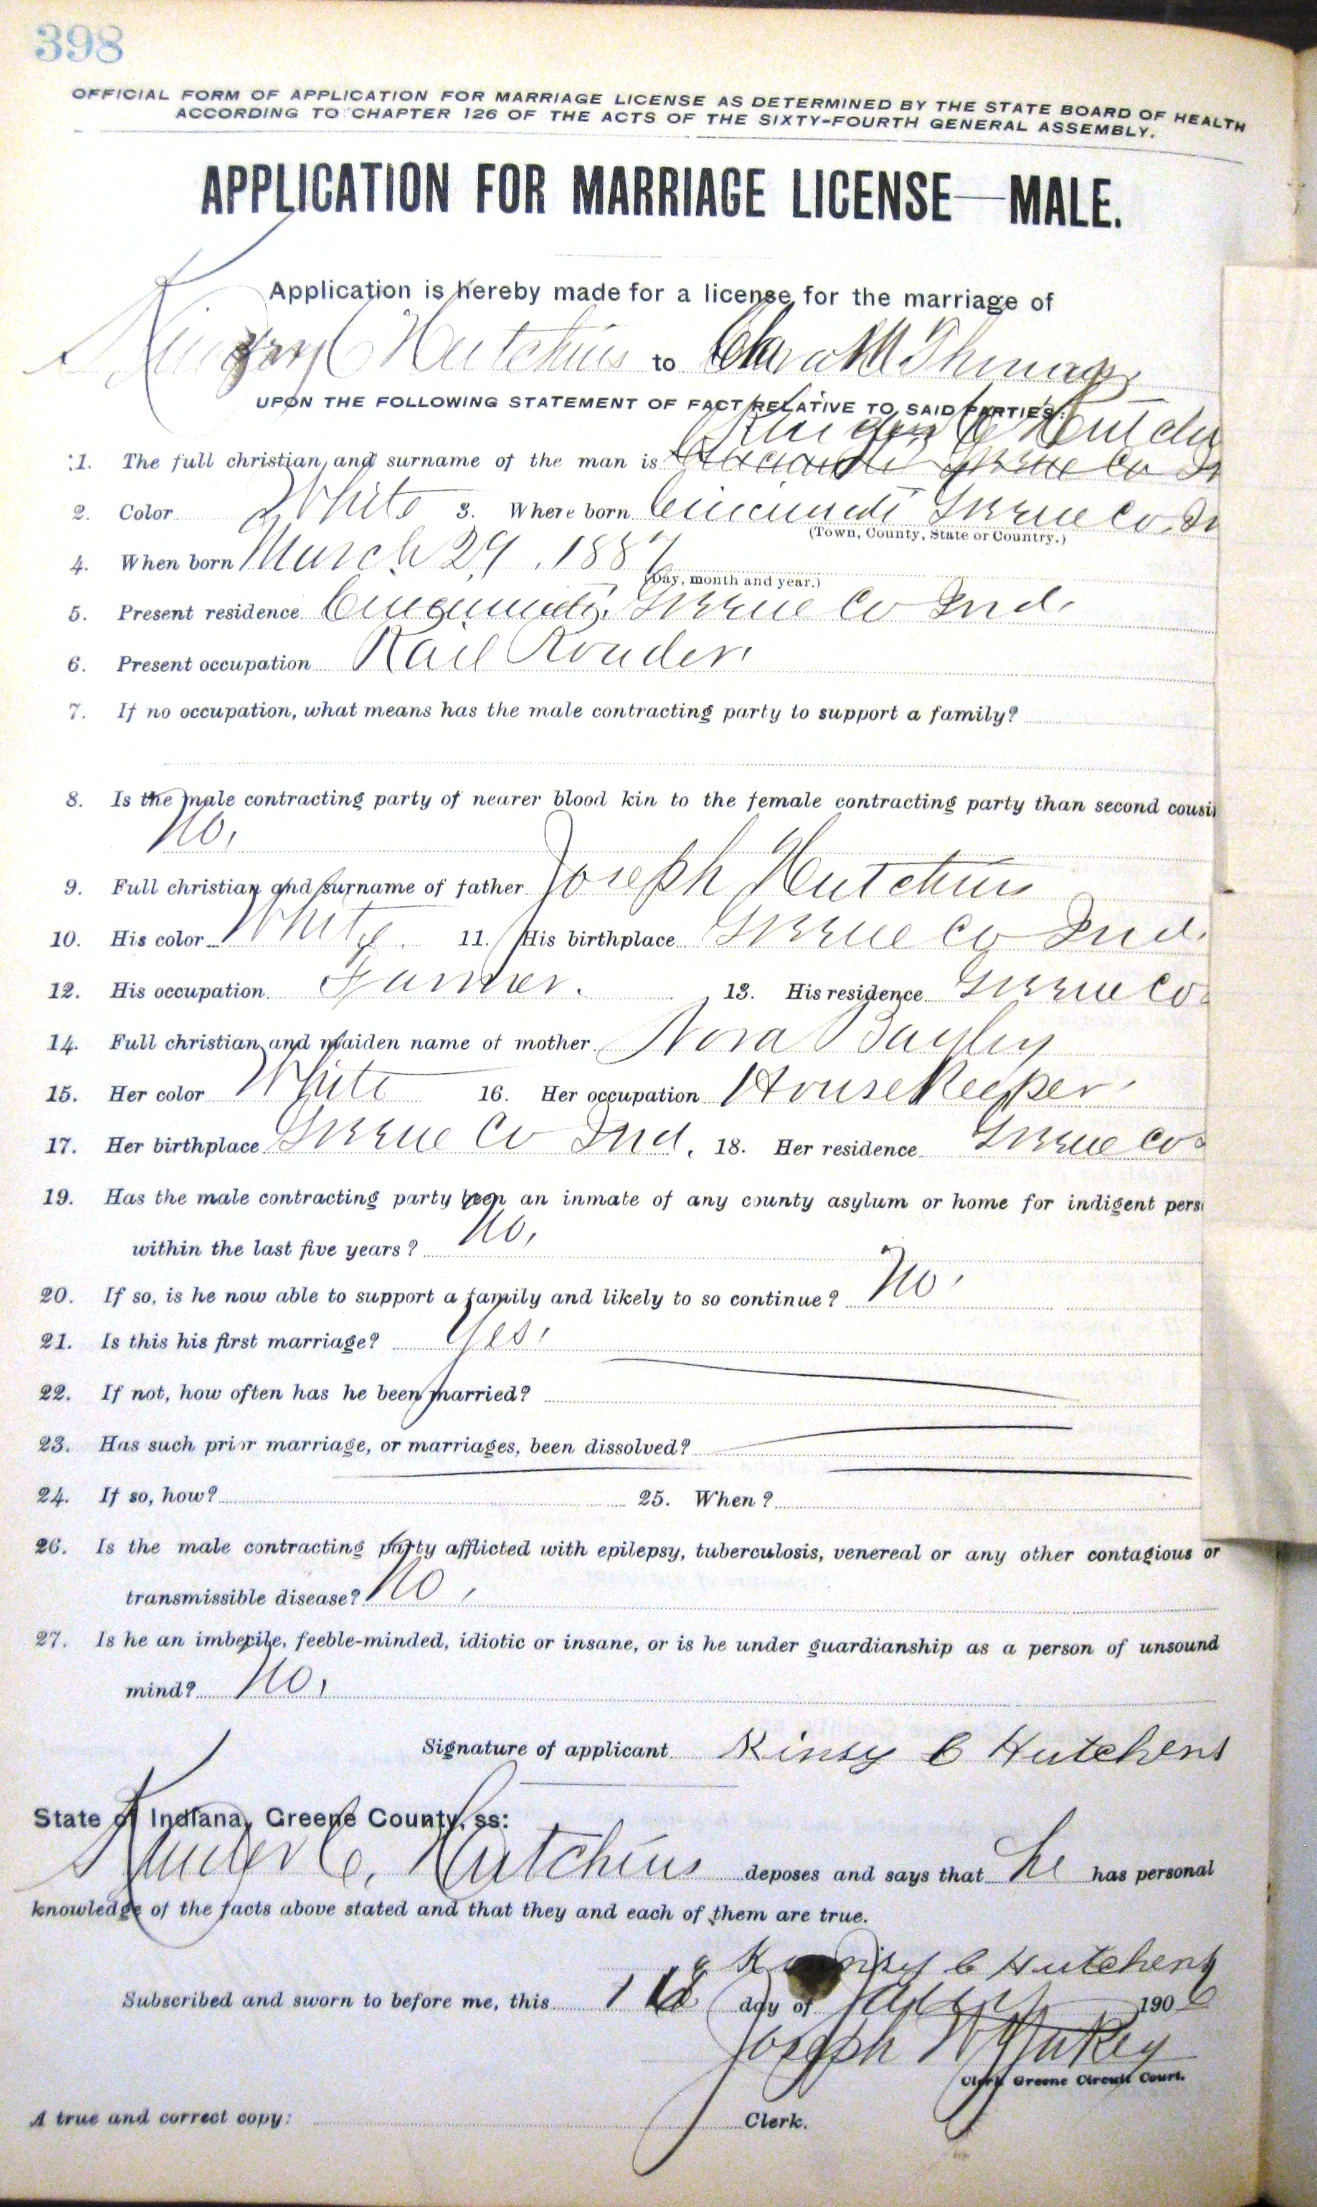 398
OFFICIAL FORM OF APPLICATION FOR MARRIAGE LICENSE AS DETERMINED BY THE STATE BOARD OF HEALTH
ACCORDING TO CHAPTER 126 OF THE ACTS OF THE SIXTY-FOURTH GENERAL ASSEMBLY.
APPLICATION FOR MARRIAGE LICENSE—MALE.
Application is hereby made for a license for the marriage of
C Hutchins to Clara M
UPON THE FOLLOWING STATEMENT OF FACT RELATIVE TO SAID PARTIES:
1. The full christian and surname of the man is C Hutchi
2. Color White 3. Where born Cincinnati Greene Co. In
(Town, County, State or Country.)
4. When born March 29, 1887
(Day, month and year.)
5. Present residence Cincinnati, Greene Co Ind.
6. Present occupation Rail Roader
7. If no occupation, what means has the male contracting party to support a family?
8. Is the male contracting party of nearer blood kin to the female contracting party than second cousi
No,
9. Full christian and surname of father Joseph Hutchins
10. His color White. 11. His birthplace Greene Co Ind.
12. His occupation Farmer. 13. His residence Greene Co
14. Full christian and maiden name of mother Nora
15. Her color White 16. Her occupation House Keeper
17. Her birthplace Greene Co Ind. 18. Her residence Greene Co
19. Has the male contracting party been an inmate of any county asylum or home for indigent pers
within the last five years? No,
20. If so, is he now able to support a family and likely to so continue? No
21. Is this his first marriage? Yes
22. If not, how often has he been married?
23. Has such prior marriage, or marriages, been dissolved?
24. If so, how? 25. When?
26. Is the male contracting party afflicted with epilepsy, tuberculosis, venereal or any other contagious or
transmissible disease? No,
27. Is he an imbecile, feeble-minded, idiotic or insane, or is he under guardianship as a person of unsound
mind? No,
Signature of applicant Kinsy C Hutchens
State of Indiana, Greene County, ss:
C. Hutchins deposes and says that he has personal
knowledge of the facts above stated and that they and each of them are true.
C Hutchens
Subscribed and sworn to before me, this day of 1906
Joseph W
Clerk Greene Circuit Court.
A true and correct copy: Clerk.